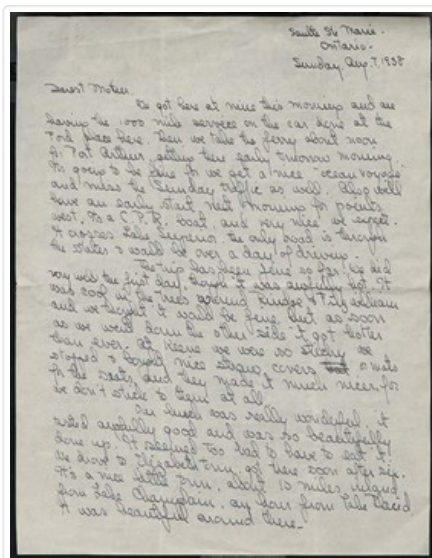 Saulte Ste Marie.
Ontario.
Sunday, Aug. 7, 1938
Dearest Mother,
We got here at nine this morning and are
having the 1000 mile service on the car done at the
Ford place here. Then we take the ferry about noon
for Port Arthur, getting there early tomorrow morning.
It's going to be fine for we get a nice "ocean voyage"
and miss the Sunday traffic as well. Also we'll
have an early start next morning for points
west. It's a C.P.R. boat, and very nice we expect.
It crosses Lake Superior, the only road is through
the States & would be over a day of driving.
The trip has been fine so far! We did
very well the first day, though it was awfully hot. It
was cool in the trees around Rindge & Fitzwilliam
and we thought it would be fine but as soon
as we went down the other side it got hotter
than ever. At Keene we were so sticky we
stopped & bought nice straw covers or mats
for the seats, and they made it much nicer for
we don't stick to them at all.
Our lunch was really wonderful, it
tasted awfully good and was so beautifully
done up. It seemed too bad to have to eat it!
We drove to Elizabethtown, got there soon after six.
It's a nice little town, about 10 miles inland
from Lake Champlain, an hour from Lake Placid
It was beautiful around there.